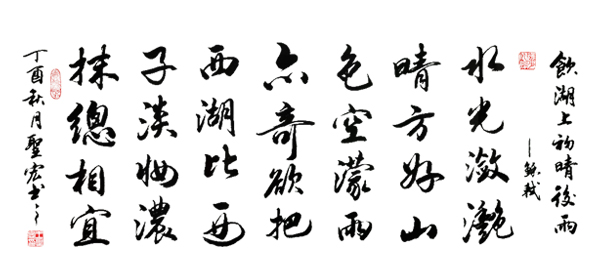 飲湖上初晴後雨
—蘇軾
水光瀲灩
晴方好山
色空濛雨
亦奇欲把
西湖比西
子淡妝濃
抹總相宜
丁酉秋月聖宏书之